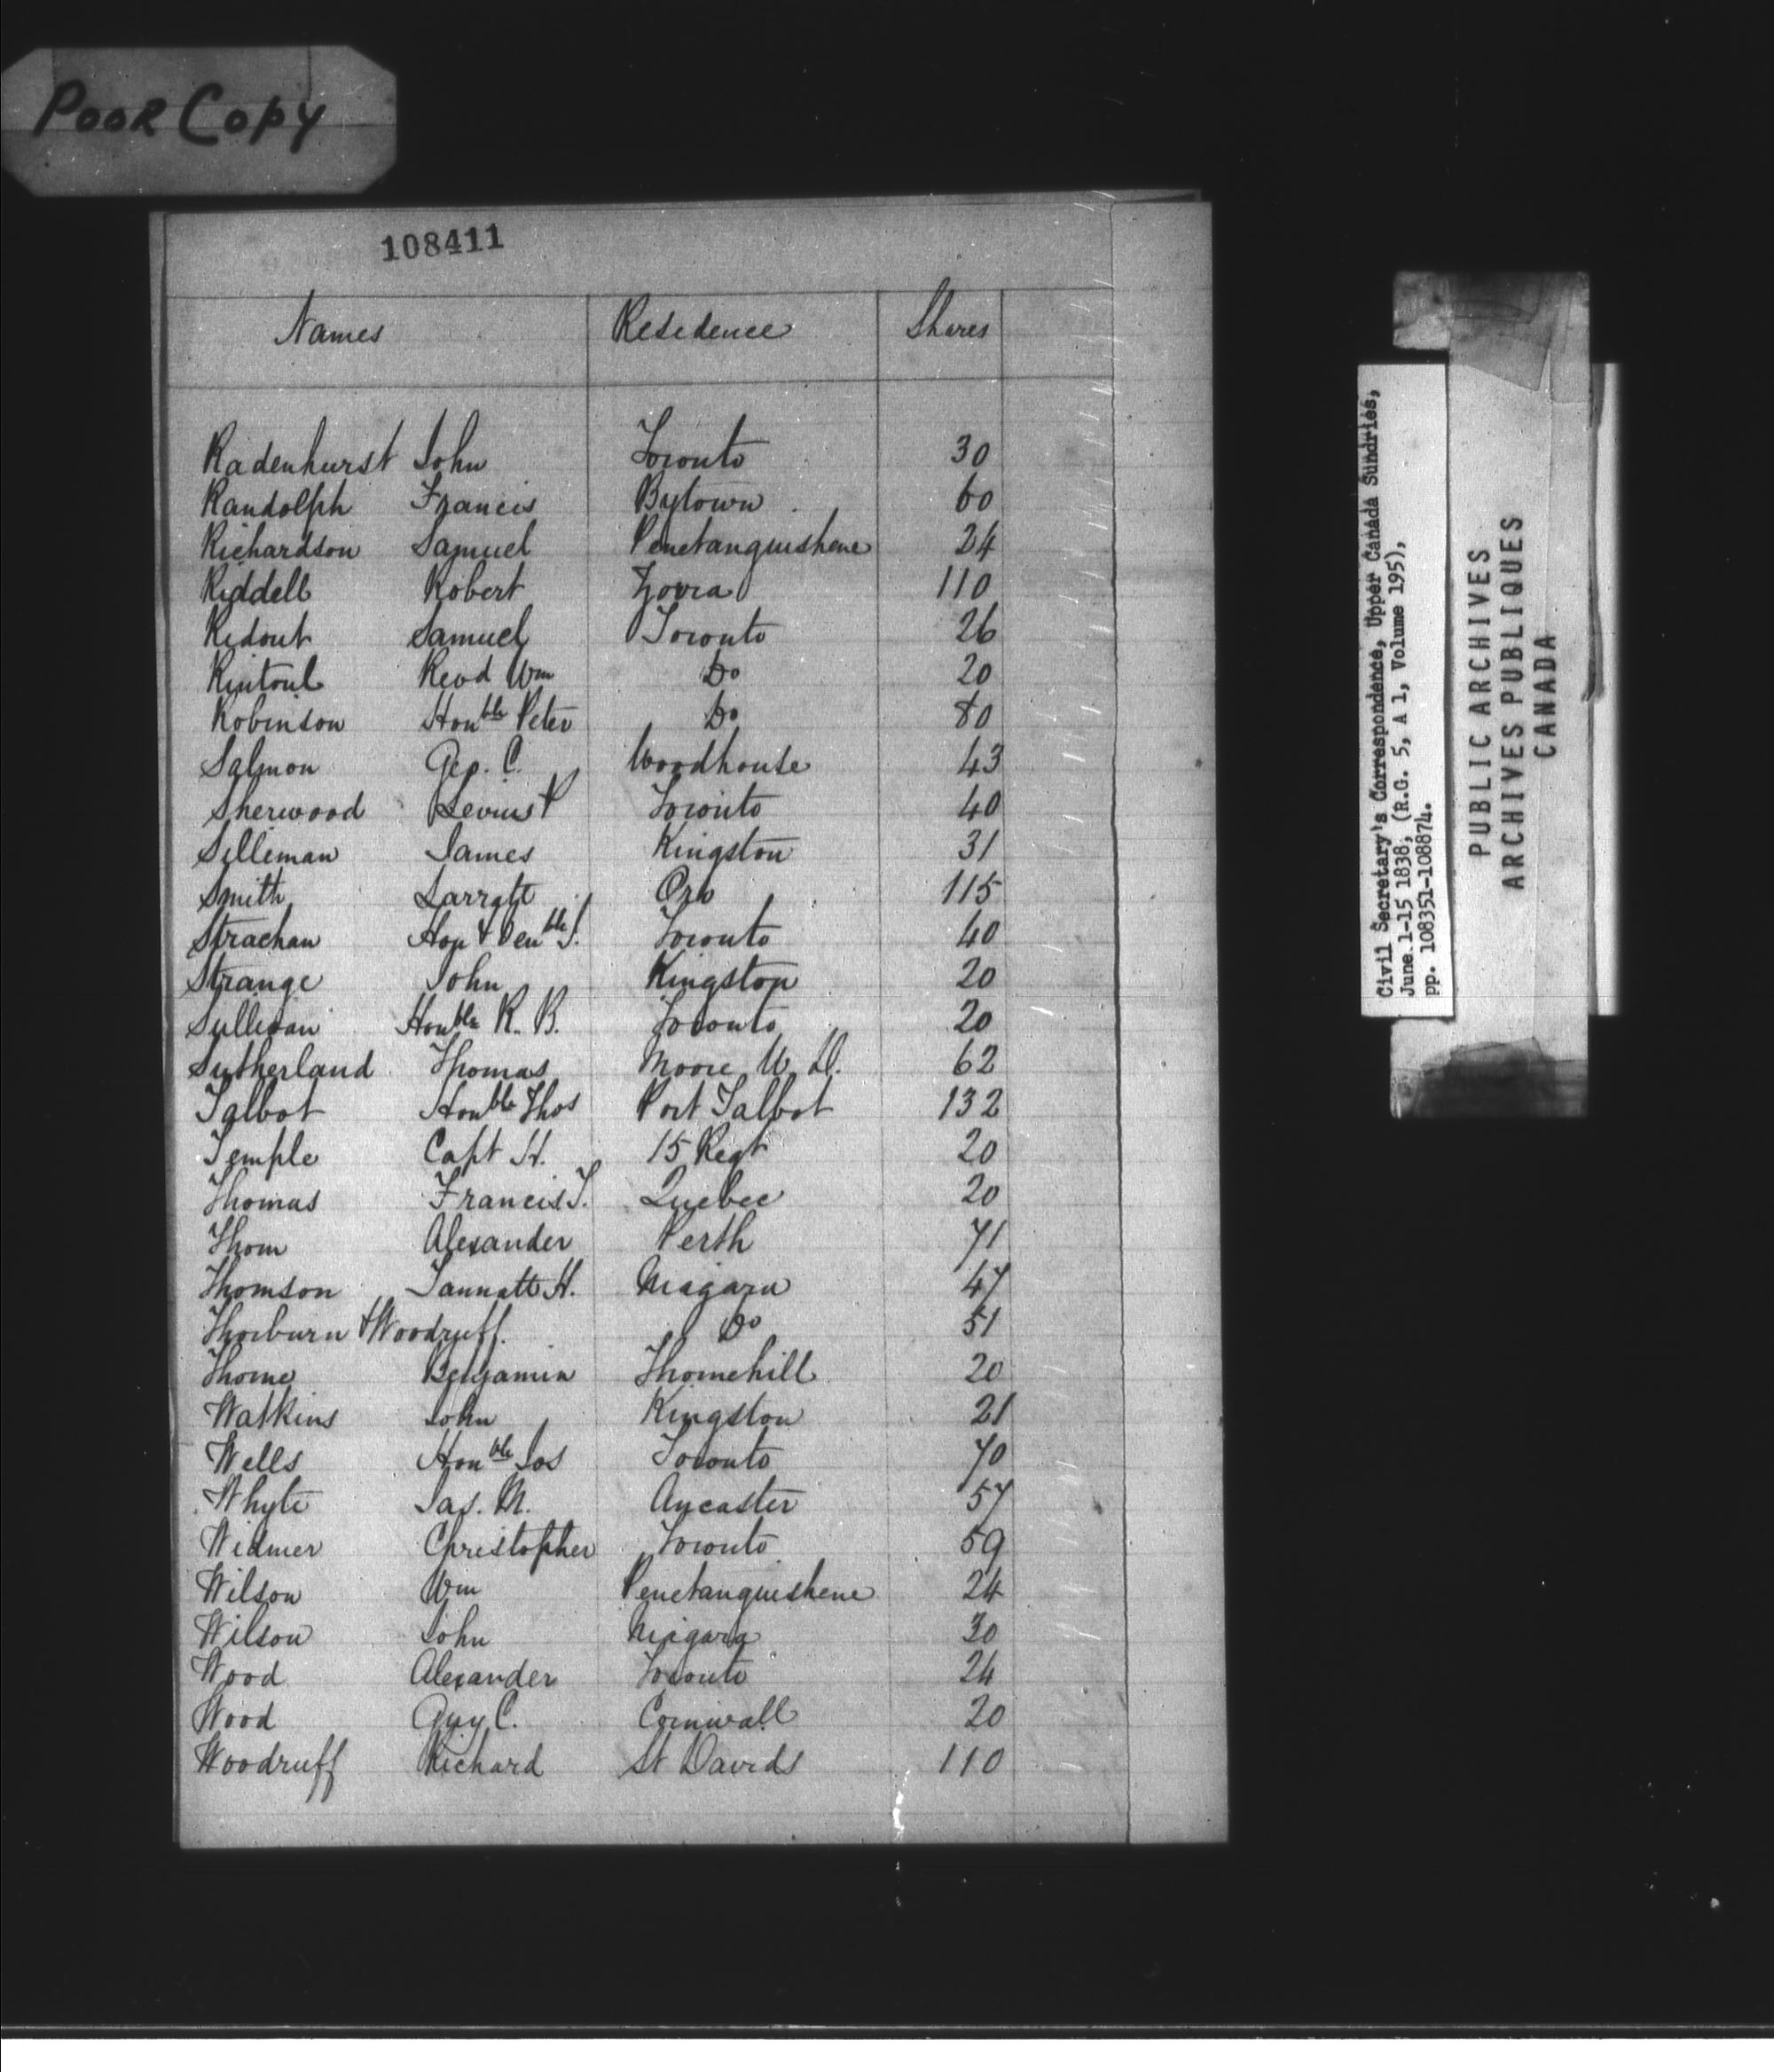 Poor Copy
108411
Names Residence Shares
Radenhurst John Toronto 30
Randolph Francis Bytown 60
Richardson Samuel Penetanguishene 24
Riddell Robert Zorra 110
Ridout Samuel Toronto 26
Rintoul Revd Wm Do 20
Robinson Honble Peter Do 80
Salmon Geo. C. Woodhouse 43
Sherwood Levius P Toronto 40
Silleman James Kingston 31
Smith Larratt Oro 115
Strachan Hon & Venble J. Toronto 40
Strange John Kingston 20
Sullivan Honble R. B. Toronto 20
Sutherland Thomas Moore W. D. 62
Talbot Honble Thos Port Talbot 132
Temple Capt H. 15 Regt 20
Thomas Francis T. Quebec 20
Thom Alexander Perth 71
Thomson Tannatt H. Niagara 47
Thorburn & Woodruff. Do 51
Thorne Benjamin Thornehill 20
Watkins John Kingston 21
Wells Honble Jos Toronto 70
Whyte Jas. M. Ancaster 57
Widmer Christopher Toronto 59
Wilson Wm Penetanguishene 24
Wilson John Niagara 30
Wood Alexander Toronto 24
Wood Guy C. Cornwall 20
Woodruff Richard St Davids 110
Civil Secretary's Correspondence, Upper Canada Sundries,
June 1-15 1838, (R.G. 5, A 1, Volume 195),
pp. 108351-108874.
PUBLIC ARCHIVES
ARCHIVES PUBLIQUES
CANADA